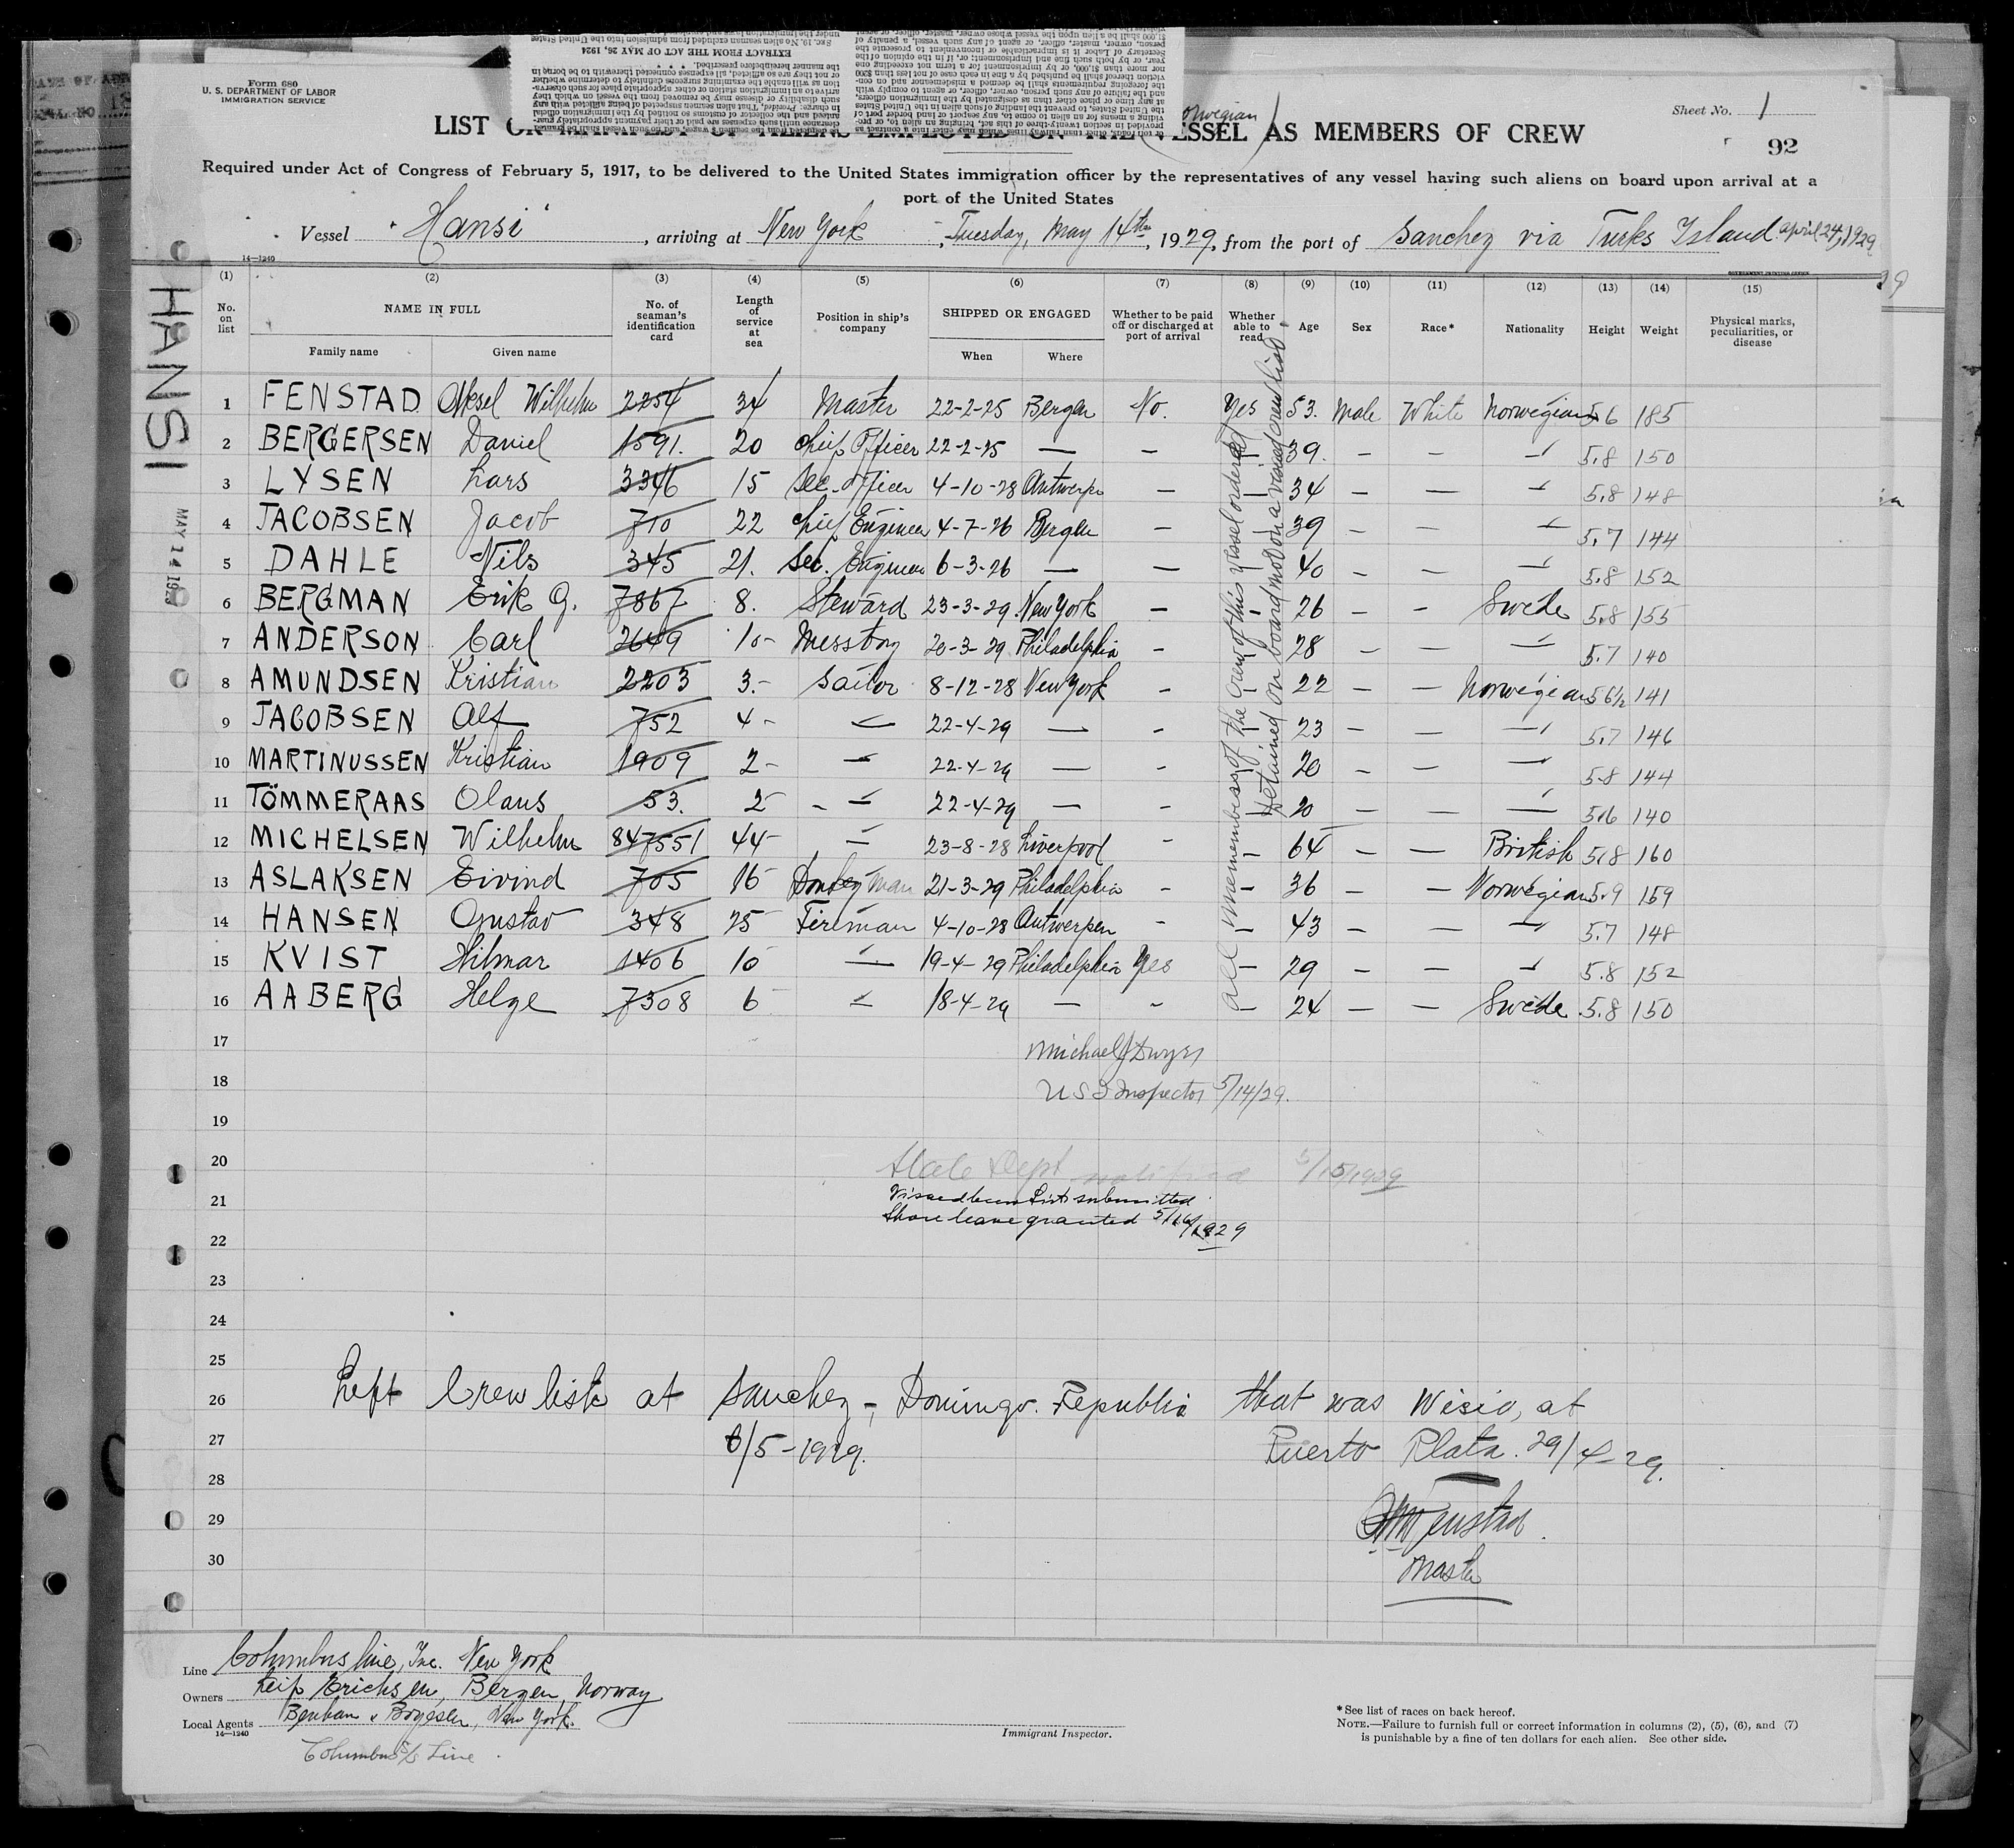 Form 680
U. S. DEPARTMENT OF LABOR
IMMIGRATION SERVICE
Sheet No. 1
92
Norwegian
LIST OR MANIFEST OF ALIENS EMPLOYED ON THE VESSEL AS MEMBERS OF CREW
Required under Act of Congress of February 5, 1917, to be delivered to the United States immigration officer by the representatives of any vessel having such aliens on board upon arrival at a
port of the United States
Vessel "Hansi", arriving at New York, Tuesday, May 14th, 1929, from the port of Sanchez via Turks Island april 24, 1929
14—1240
HANSI
MAY 14 1929
(1) (2) (3) (4) (5) (6) (7) (8) (9) (10) (11) (12) (13) (14) (15)
No. on list
NAME IN FULL
Family name
Given name
No. of seaman's identification card
Length of service at sea
Position in ship's company
SHIPPED OR ENGAGED
When
Where
Whether to be paid off or discharged at port of arrival
Whether able to read
Age
Sex
Race*
Nationality
Height
Weight
Physical marks, peculiarities, or disease
1 FENSTAD Aksel Wilhelm 2254 34 Master 22-2-25 Bergen No. Yes 53. Male White Norwegian 5.6 185
2 BERGERSEN Daniel 1591. 20 Chief Officer 22-2-25 — - - 39. - - -"- 5.8 150
3 LYSEN Lars 3346 15 Sec. Officer 4-10-28 Antwerpn — - 34 - — -"- 5.8 148
4 JACOBSEN Jacob 710 22 Chief Engineer 4-7-26 Bergen - - 39 - — -"- 5.7 144
5 DAHLE Nils 345 21. Sec. Engineer 6-3-26 — — - 40 - - -"- 5.8 152
6 BERGMAN Erik G. 7867 8. Steward 23-3-29 New York - - 26 - - Swede 5.8 155
7 ANDERSON Carl 2649 10- Messboy 20-3-29 Philadelphia - - 28 - — -"- 5.7 140
8 AMUNDSEN Kristian 2203 3.- Sailor 8-12-28 New York - - 22 - — Norwegian 5 6½ 141
9 JACOBSEN Alf 752 4- -"- 22-4-29 — - - 23 - — -"- 5.7 146
10 MARTINUSSEN Kristian 1909 2- -"- 22-4-29 — - - 20 - — -"- 5.8 144
11 TÖMMERAAS Olaus 53. 2 -"- 22-4-29 — - - 20 - — -"- 5.6 140
12 MICHELSEN Wilhelm 847551 44- -"- 23-8-28 Liverpool - - 64 - — British 5.8 160
13 ASLAKSEN Eivind 705 16 Donkeyman 21-3-29 Philadelphia - - 36 - — Norwegian 5.9 159
14 HANSEN Gustav 348 25 Fireman 4-10-28 Antwerpen - - 43 - — -"- 5.7 148
15 KVIST Hilmar 1406 10 -"- 19-4-29 Philadelphia Yes - 29 - — -"- 5.8 152
16 AABERG Helge 7308 6 -"- 18-4-29 — - - 24 — — Swede 5.8 150
All members of the crew of this vessel ordered
detained on board not on a visaed crew list
17
Michael J Dwyer
18
U S I Inspector 5/14/29.
19
20
State Dept notified 5/15/1929
21
Visaed crew list submitted
Shore leave granted 5/16/1929
22
23
24
25
26
Left Crew liste at Sanchez, Domingo. Republic that was Visio, at
27
6/5-1929.
Puerto Plata. 29/4-29.
28
29
AWFenstad.
30
Master
Line Columbus line, Inc. New York
Owners Leif Erichsen, Bergen, Norway
Local Agents Benham & Boyesen, New York.
14—1240
Columbus S/S Line
Immigrant Inspector.
*See list of races on back hereof.
NOTE.—Failure to furnish full or correct information in columns (2), (5), (6), and (7)
is punishable by a fine of ten dollars for each alien. See other side.